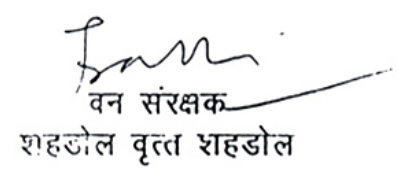 वन संरक्षक
शहडोल वृत्त शहडोल